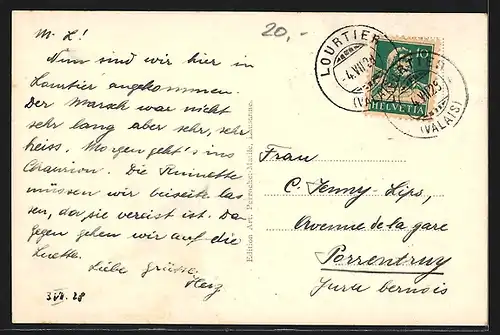 20,-
M. L!
Nun sind wir hier in
Lourtier angekommen.
Der Marsch war nicht
sehr lang aber sehr, sehr
heiss. Morgen geht's ins
Chanrion. Die Ruinette
müssen wir beiseite las-
sen, da sie vereist ist. Da
gegen gehen wir auf die
Luette.
Liebe Grüsse
Herz
3.VII.28
Edition Art. Perrochet-Matile, Lausanne.
LOURTIER
4.VII.28
(VALAIS)
10
HELVETIA
LOURTIER
4.VII.28
(VALAIS)
Frau
C. Jenny-Lips,
Avenue de la gare
Porrentruy
Jura bernois